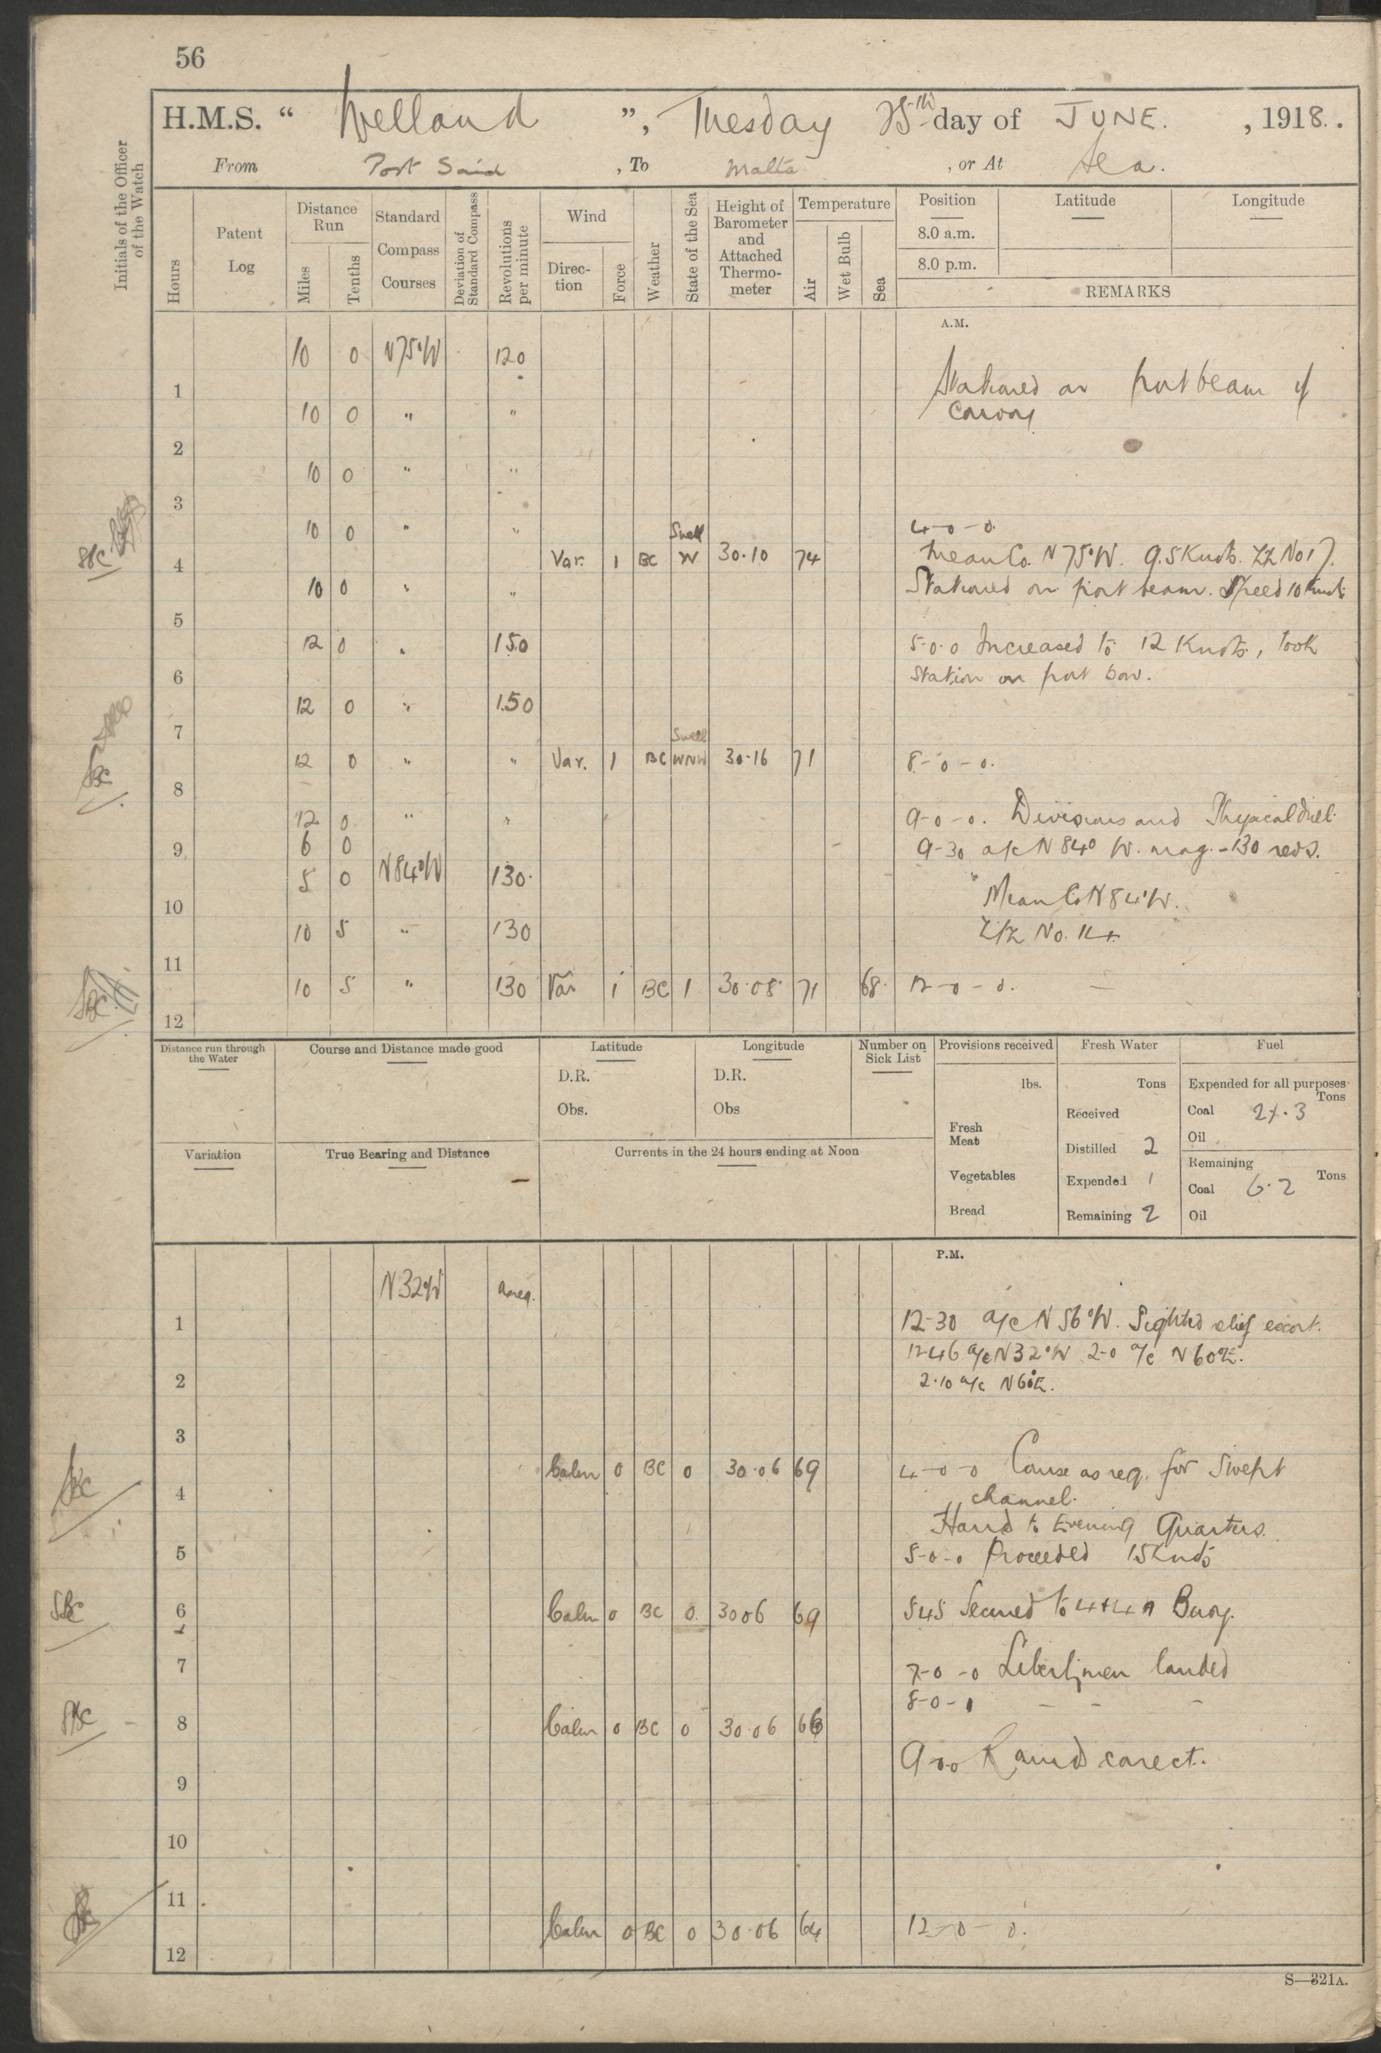 56
H.M.S. “ Welland ”, Tuesday 25th day of JUNE. , 1918.
From Port Said , To Malta , or At Sea.
Initials of the Officer of the Watch
Hours
Patent Log
Distance Run
Miles
Tenths
Standard Compass Courses
Deviation of Standard Compass
Revolutions per minute
Wind
Direction
Force
Weather
State of the Sea
Height of Barometer and Attached Thermometer
Temperature
Air
Wet Bulb
Sea
Position
Latitude
Longitude
8.0 a.m.
8.0 p.m.
REMARKS
A.M.
10 0 N75°W 120
1 Stationed on port beam of
convoy
10 0 " "
2
10 0 " "
3
10 0 " " 4-0-0
4 Var. 1 BC Swell W 30.10 74 Mean Co. N75°W. 9.5 Knots. ZZ No 17.
10 0 " " Stationed on port beam. Speed 10 Knots
5
12 0 " 150 5.0.0 Increased to 12 Knots, took
6 station on port bow.
12 0 " 150
7
12 0 " " Var. 1 BC Swell WNW 30.16 71 8-0-0.
8
12 0 " " 9-0-0. Divisions and Physical drill.
6 0
9 9-30 a/c N84° W. mag. - 130 revs.
5 0 N84°W 130.
10 Mean Co N84°W.
10 5 " 130 Z/Z No. 14
11
10 5 " 130 Var 1 BC 1 30.08 71 68 12-0-0.
12
Distance run through the Water
Course and Distance made good
Latitude
D.R.
Obs.
Longitude
D.R.
Obs
Number on Sick List
Provisions received
lbs.
Fresh Meat
Vegetables
Bread
Fresh Water
Tons
Received
Distilled 2
Expended 1
Remaining 2
Fuel
Expended for all purposes
Tons
Coal 27.3
Oil
Remaining
Tons
Coal 62
Oil
Variation
True Bearing and Distance
Currents in the 24 hours ending at Noon
P.M.
N32°W as req.
1 12-30 a/c N56°W. Sighted relief escort.
12.46 a/c N32°W 2-0 a/c N60°E.
2 2.10 a/c N60°E.
3
Calm 0 BC 0 30.06 69 4-0-0 Course as req. for swept
4 channel.
Hands to Evening Quarters.
5 5-0-0 Proceeded 15 Knots
SBC 6 Calm 0 BC 0 3006 69 545 Secured to 4+4A Buoy.
7 7-0-0 Libertymen landed
8-0-0
SBC 8 Calm 0 BC 0 30.06 66
9.0.0 Rounds correct.
9
10
11
Calm 0 BC 0 30.06 64 12-0-0.
12
S—321A.